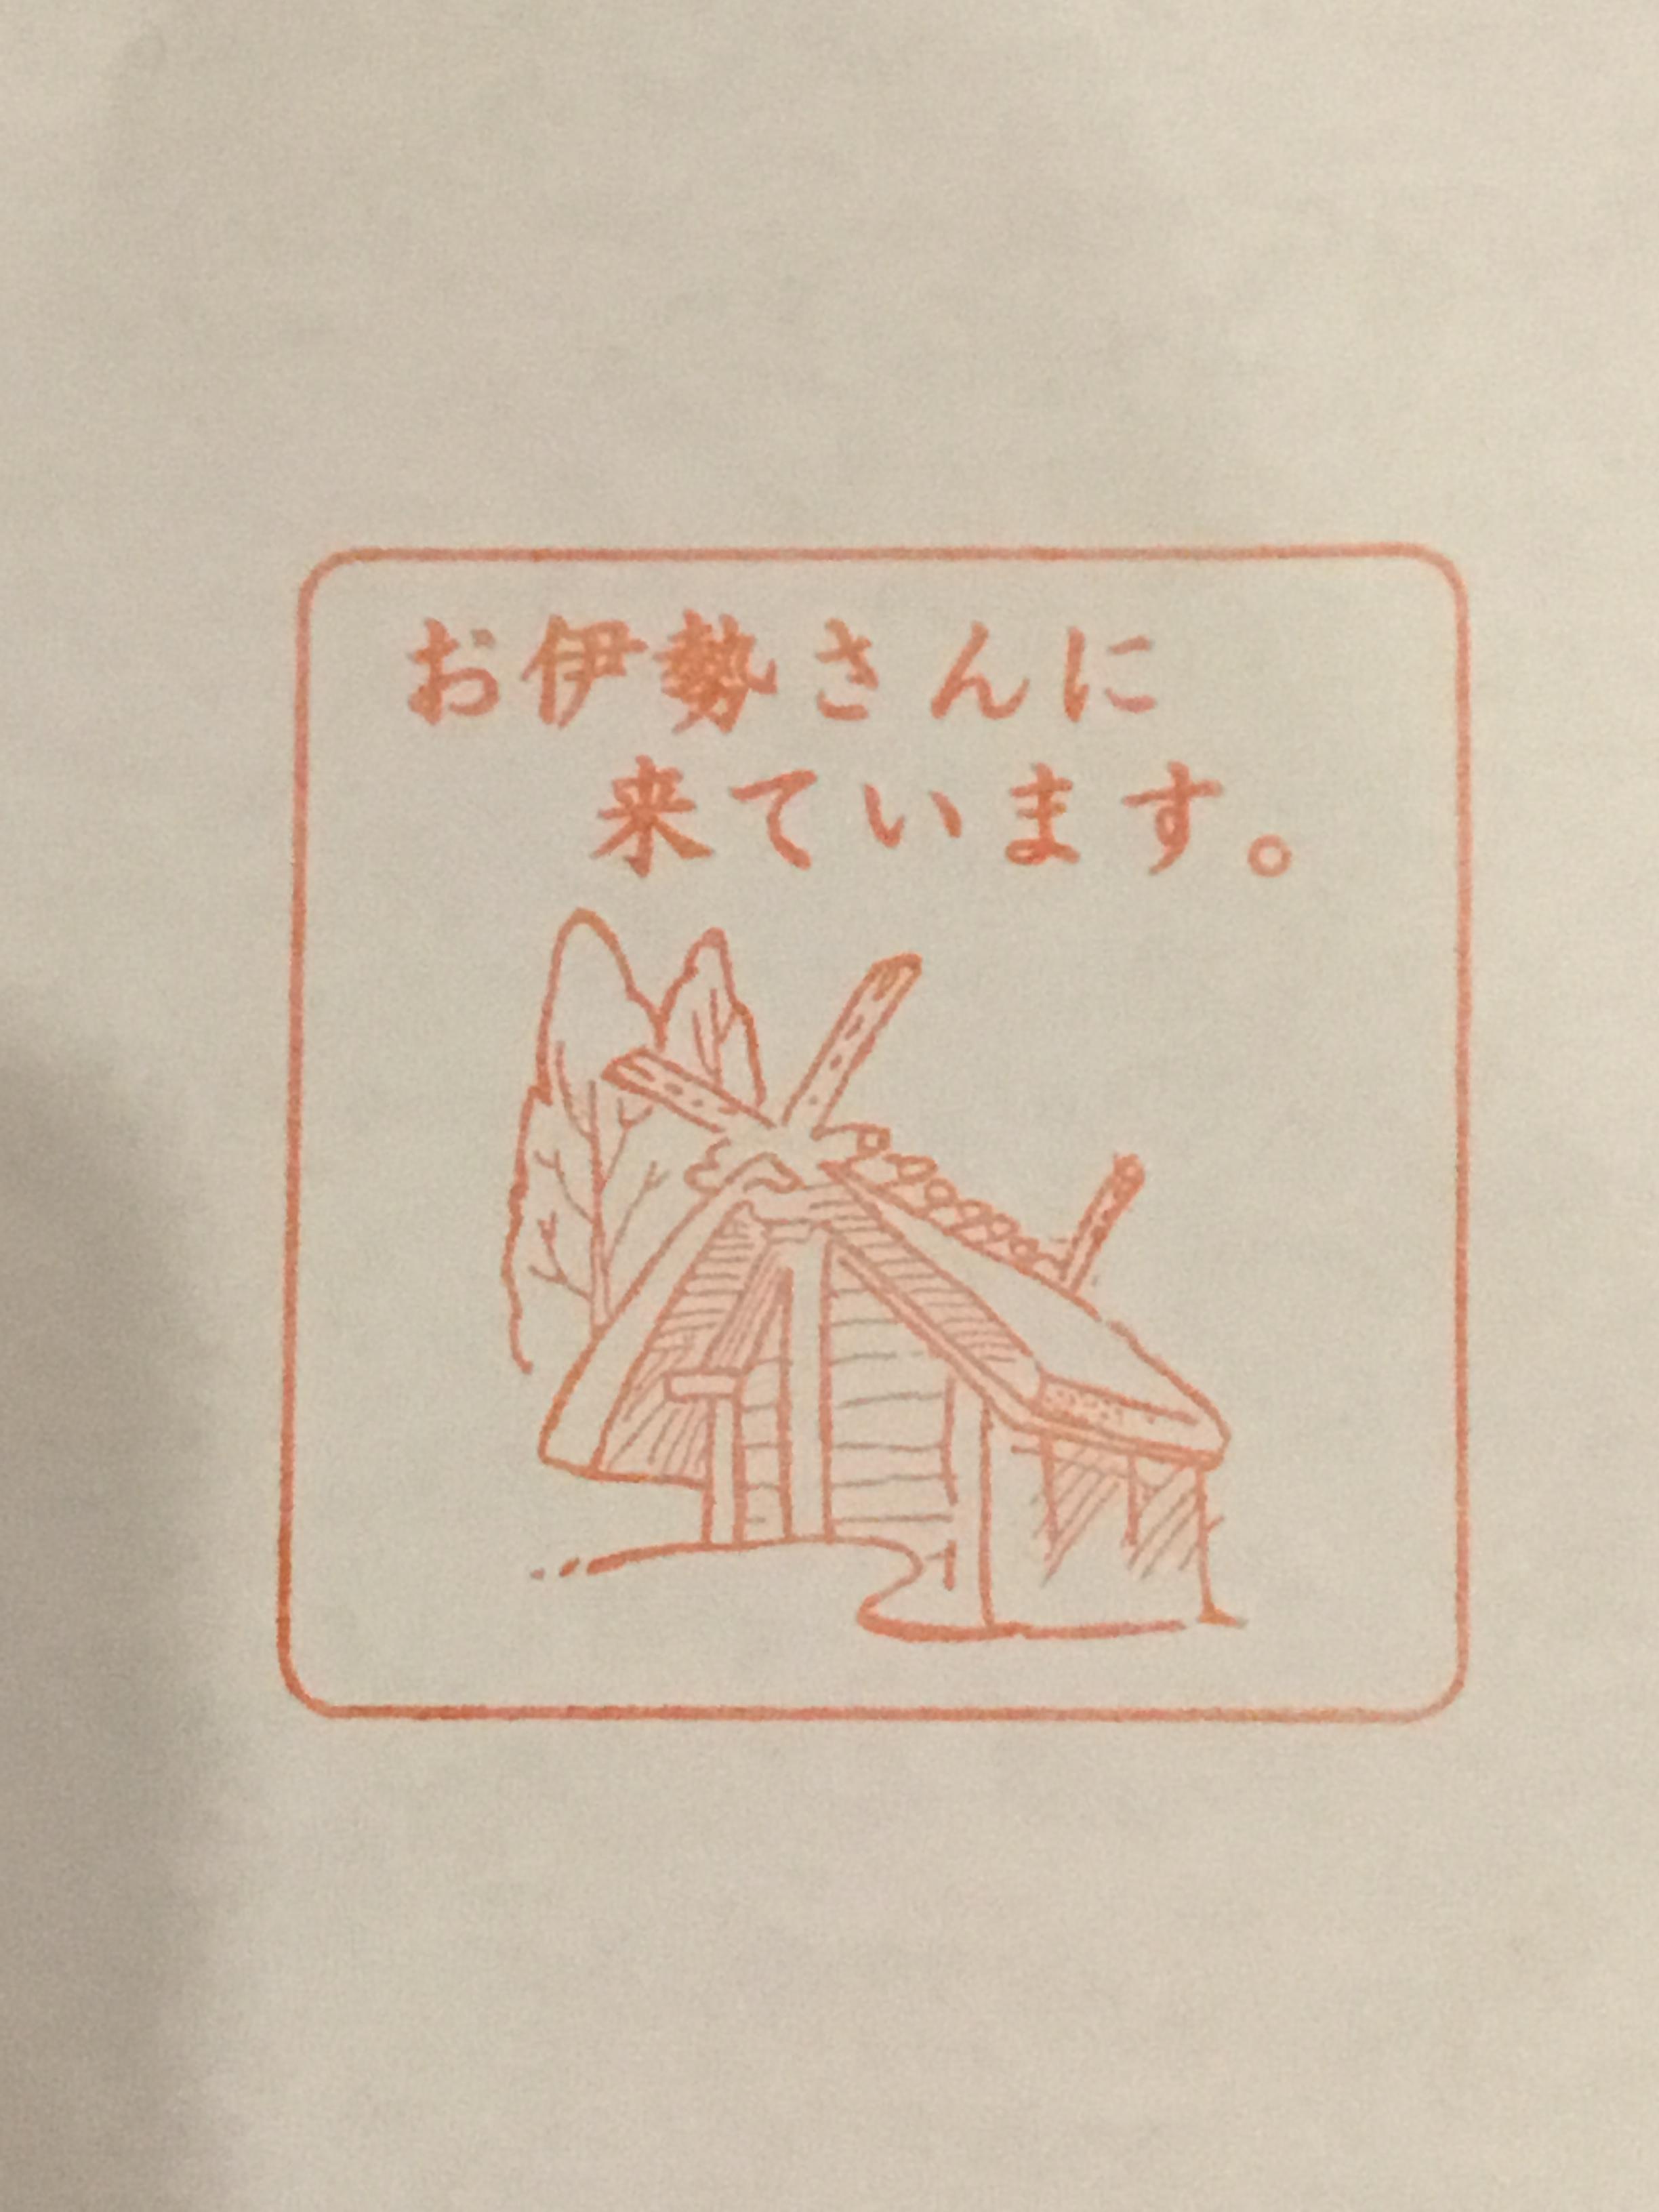 お伊勢さんに
来ています。